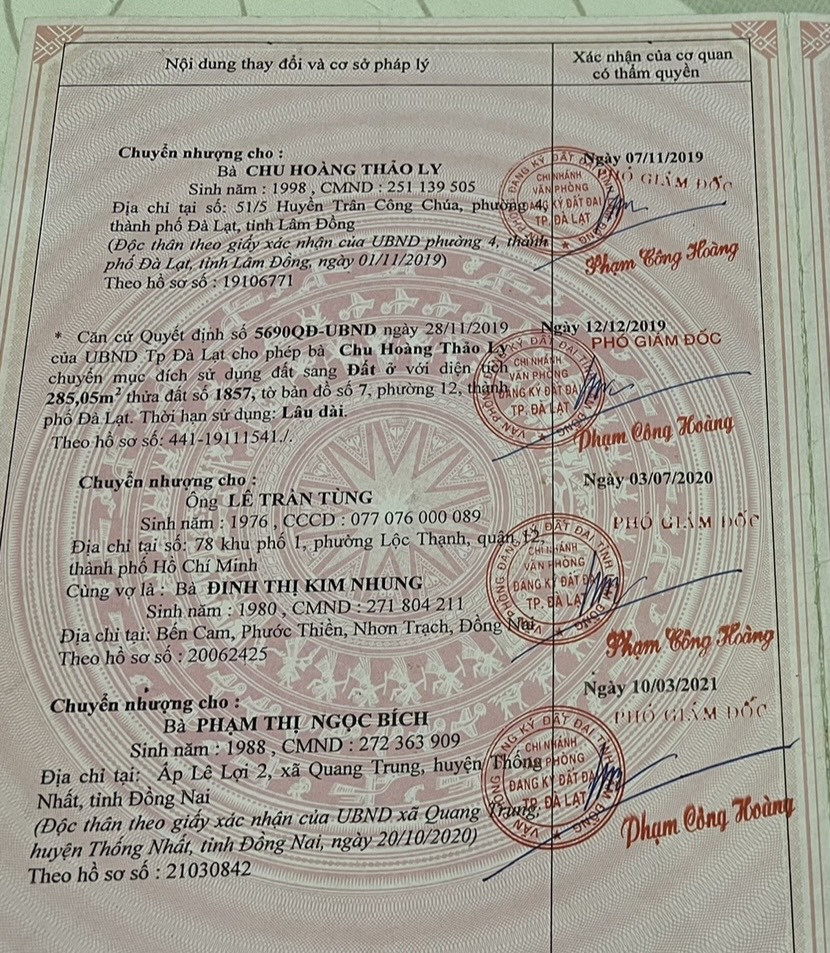 Nội dung thay đổi và cơ sở pháp lý
Xác nhận của cơ quan
có thẩm quyền
Chuyển nhượng cho :
Bà CHU HOÀNG THẢO LY
Sinh năm : 1998 , CMND : 251 139 505
Địa chỉ tại số: 51/5 Huyền Trân Công Chúa, phường 4,
thành phố Đà Lạt, tỉnh Lâm Đồng
(Độc thân theo giấy xác nhận của UBND phường 4, thành
phố Đà Lạt, tỉnh Lâm Đồng, ngày 01/11/2019)
Theo hồ sơ số : 19106771
Ngày 07/11/2019
PHÓ GIÁM ĐỐC
CHI NHÁNH
VĂN PHÒNG
ĐĂNG KÝ ĐẤT ĐAI
TP. ĐÀ LẠT
Phạm Công Hoàng
* Căn cứ Quyết định số 5690QĐ-UBND ngày 28/11/2019
của UBND Tp Đà Lạt cho phép bà Chu Hoàng Thảo Ly
chuyển mục đích sử dụng đất sang Đất ở với diện tích
285,05m² thửa đất số 1857, tờ bản đồ số 7, phường 12, thành
phố Đà Lạt. Thời hạn sử dụng: Lâu dài.
Theo hồ sơ số: 441-19111541./.
Ngày 12/12/2019
PHÓ GIÁM ĐỐC
CHI NHÁNH
VĂN PHÒNG
ĐĂNG KÝ ĐẤT ĐAI
TP. ĐÀ LẠT
Phạm Công Hoàng
Chuyển nhượng cho :
Ông LÊ TRẦN TÙNG
Sinh năm : 1976 , CCCD : 077 076 000 089
Địa chỉ tại số: 78 khu phố 1, phường Lộc Thạnh, quận 12,
thành phố Hồ Chí Minh
Cùng vợ là : Bà ĐINH THỊ KIM NHUNG
Sinh năm : 1980 , CMND : 271 804 211
Địa chỉ tại: Bến Cam, Phước Thiền, Nhơn Trạch, Đồng Nai
Theo hồ sơ số : 20062425
Ngày 03/07/2020
PHÓ GIÁM ĐỐC
CHI NHÁNH
VĂN PHÒNG
ĐĂNG KÝ ĐẤT ĐAI
TP. ĐÀ LẠT
Phạm Công Hoàng
Chuyển nhượng cho :
Bà PHẠM THỊ NGỌC BÍCH
Sinh năm : 1988 , CMND : 272 363 909
Địa chỉ tại: Ấp Lê Lợi 2, xã Quang Trung, huyện Thống
Nhất, tỉnh Đồng Nai
(Độc thân theo giấy xác nhận của UBND xã Quang Trung,
huyện Thống Nhất, tỉnh Đồng Nai, ngày 20/10/2020)
Theo hồ sơ số : 21030842
Ngày 10/03/2021
PHÓ GIÁM ĐỐC
CHI NHÁNH
VĂN PHÒNG
ĐĂNG KÝ ĐẤT ĐAI
TP. ĐÀ LẠT
Phạm Công Hoàng